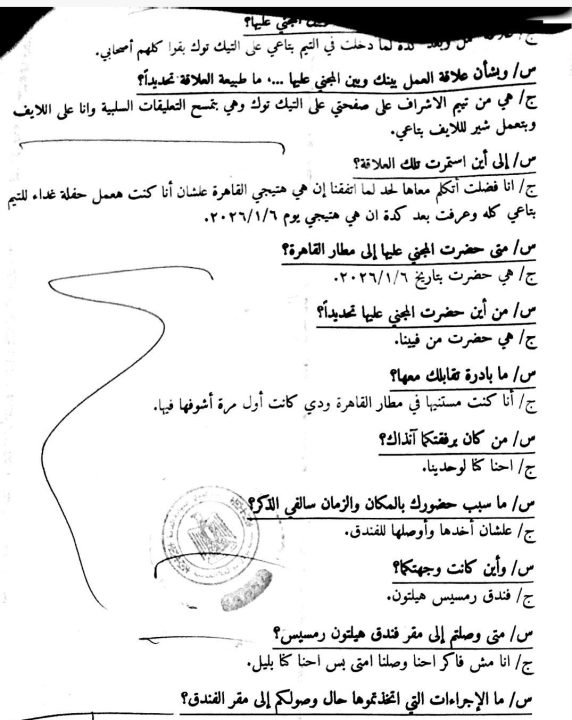 المجني عليها؟
كدة لما دخلت في التيم بتاعي على التيك توك بقوا كلهم أصحابي.
س/ وبشأن علاقة العمل بينك وبين المجني عليها ...، ما طبيعة العلاقة تحديداً؟
ج/ هي من تيم الاشراف على صفحتي على التيك توك وهي بتمسح التعليقات السلبية وانا على اللايف
وبتعمل شير لللايف بتاعي.
س/ إلى أين استمرت تلك العلاقة؟
ج/ انا فضلت أتكلم معاها لحد لما اتفقنا إن هي هتيجي القاهرة علشان أنا كنت هعمل حفلة غداء للتيم
بتاعي كله وعرفت بعد كدة ان هي هتيجي يوم ٢٠٢٦/١/٦.
س/ متى حضرت المجني عليها إلى مطار القاهرة؟
ج/ هي حضرت بتاريخ ٢٠٢٦/١/٦.
س/ من أين حضرت المجني عليها تحديداً؟
ج/ هي حضرت من فيينا.
س/ ما بادرة تقابلك معها؟
ج/ أنا كنت مستنيها في مطار القاهرة ودي كانت أول مرة أشوفها فيها.
س/ من كان برفقتكما آنذاك؟
ج/ احنا كنا لوحدينا.
س/ ما سبب حضورك بالمكان والزمان سالفي الذكر؟
ج/ علشان أخدها وأوصلها للفندق.
س/ وأين كانت وجهتكما؟
ج/ فندق رمسيس هيلتون.
س/ متى وصلتم إلى مقر فندق هيلتون رمسيس؟
ج/ انا مش فاكر احنا وصلنا امتى بس احنا كنا بليل.
س/ ما الإجراءات التي اتخذتموها حال وصولكم إلى مقر الفندق؟